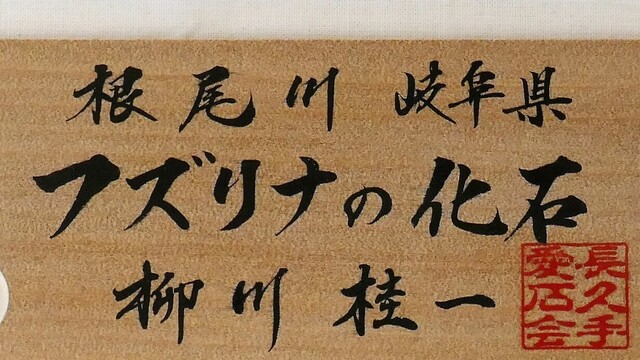 根尾川 岐阜県
フズリナの化石
柳川 桂一
長久手
愛石会